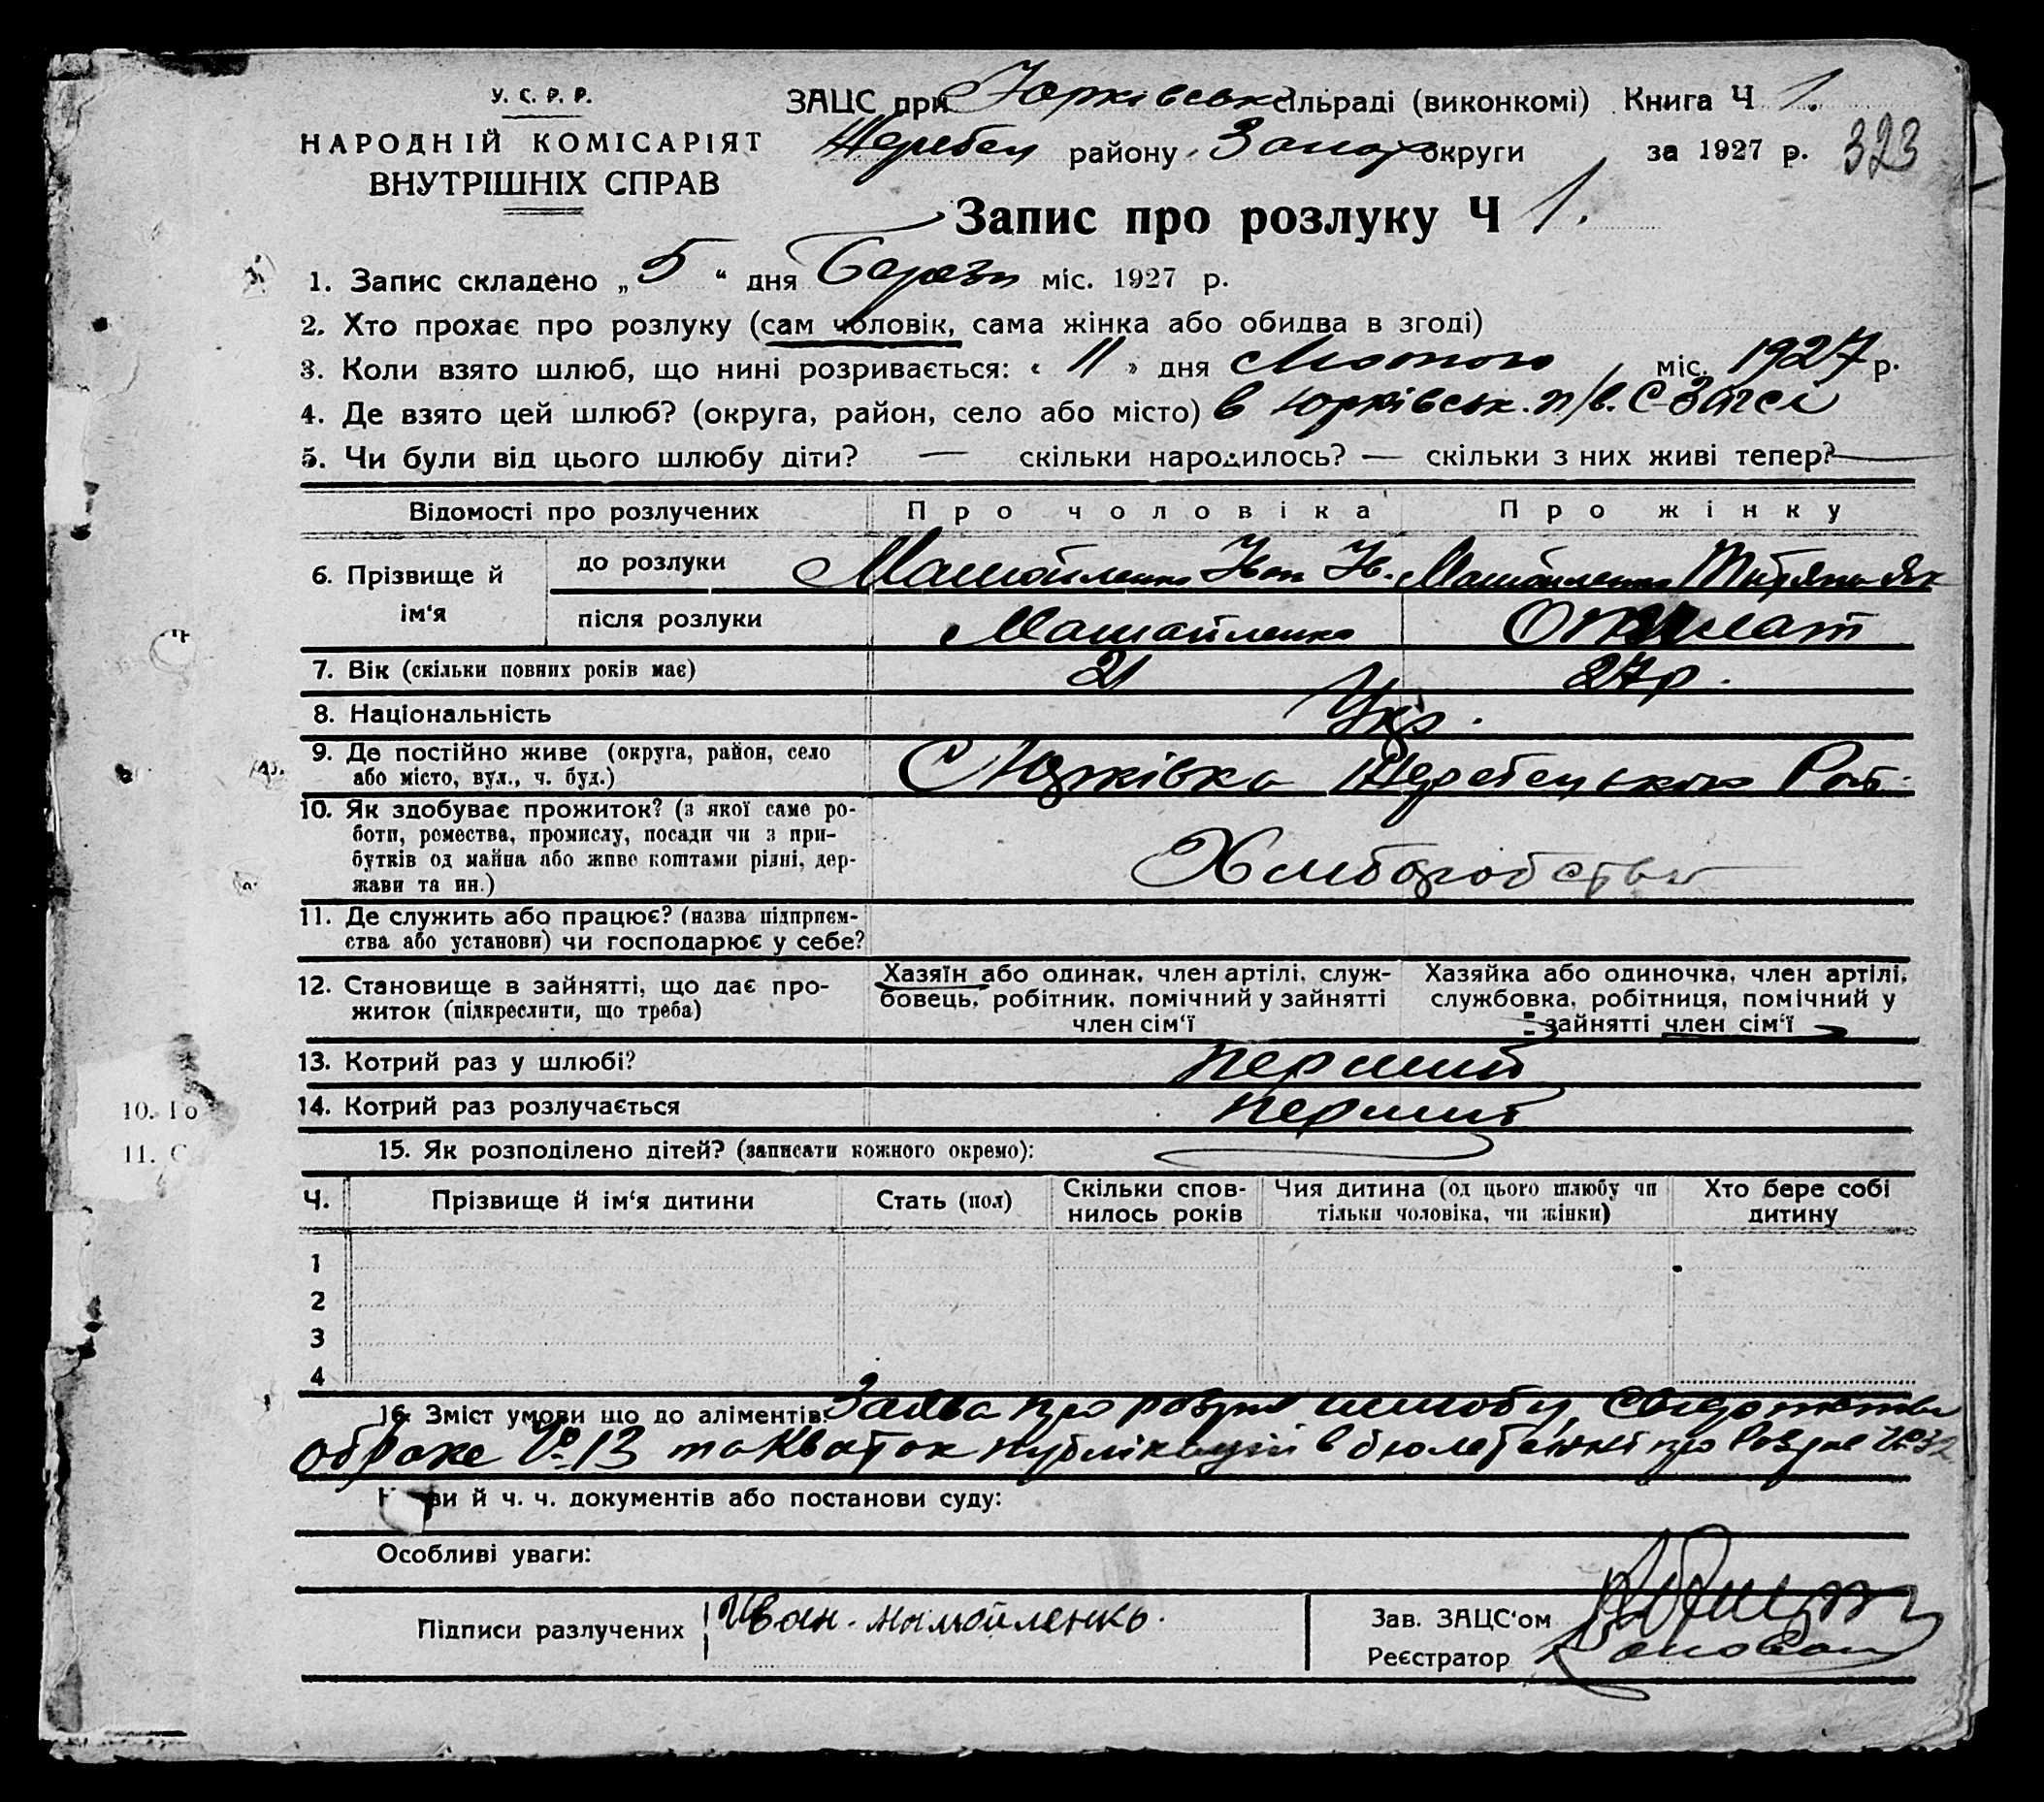 У. С. Р. Р.
НАРОДНІЙ КОМІСАРІЯТ
ВНУТРІШНІХ СПРАВ
ЗАЦС при Юрківськ сільраді (виконкомі) Книга Ч 1.
Жеребец району Запор округи за 1927 р. 323
Запис про розлуку Ч 1.
1. Запис складено „ 5 “ дня Березн міс. 1927 р.
2. Хто прохає про розлуку (сам чоловік, сама жінка або обидва в згоді)
3. Коли взято шлюб, що нині розривається: « 11 » дня Лютого міс. 1927 р.
4. Де взято цей шлюб? (округа, район, село або місто) в Юрківськ. п/в. С-Загсі
5. Чи були від цього шлюбу діти? — скільки народилось? — скільки з них живі тепер? —
Відомості про розлучених Про чоловіка Про жінку
6. Прізвище й ім‘я
до розлуки Ів.
після розлуки
7. Вік (скільки повних років має) 21 27 р.
8. Національність Укр.
9. Де постійно живе (округа, район, село
або місто, вул., ч. буд.) С Юрківка Жеребецького Рай.
10. Як здобуває прожиток? (з якої саме ро-
боти, ремества, промислу, посади чи з при-
бутків од майна або живе коштами рідні, дер-
жави та ин.) Хліборобство
11. Де служить або працює? (назва підприєм-
ства або установи) чи господарює у себе?
12. Становище в зайнятті, що дає про-
житок (підкреслити, що треба)
Хазяїн або одинак, член артілі, служ-
бовець, робітник, помічний у зайнятті
член сім‘ї
Хазяйка або одиночка, член артілі,
службовка, робітниця, помічний у
зайнятті член сім‘ї
13. Котрий раз у шлюбі? перший
14. Котрий раз розлучається перший
15. Як розподілено дітей? (записати кожного окремо):
Ч. Прізвище й ім‘я дитини Стать (пол) Скільки спов-
нилось років Чия дитина (од цього шлюбу чи
тільки чоловіка, чи жінки) Хто бере собі
дитину
1
2
3
4
16. Зміст умови що до аліментів: Заява про розрив шлюбу,
о браке № 13 та публікації в бюлетені про розрив № 32
й ч. ч. документів або постанови суду:
Особливі уваги:
Підписи разлучених Иван
Зав. ЗАЦС‘ом
Реєстратор
10. Го
11. С